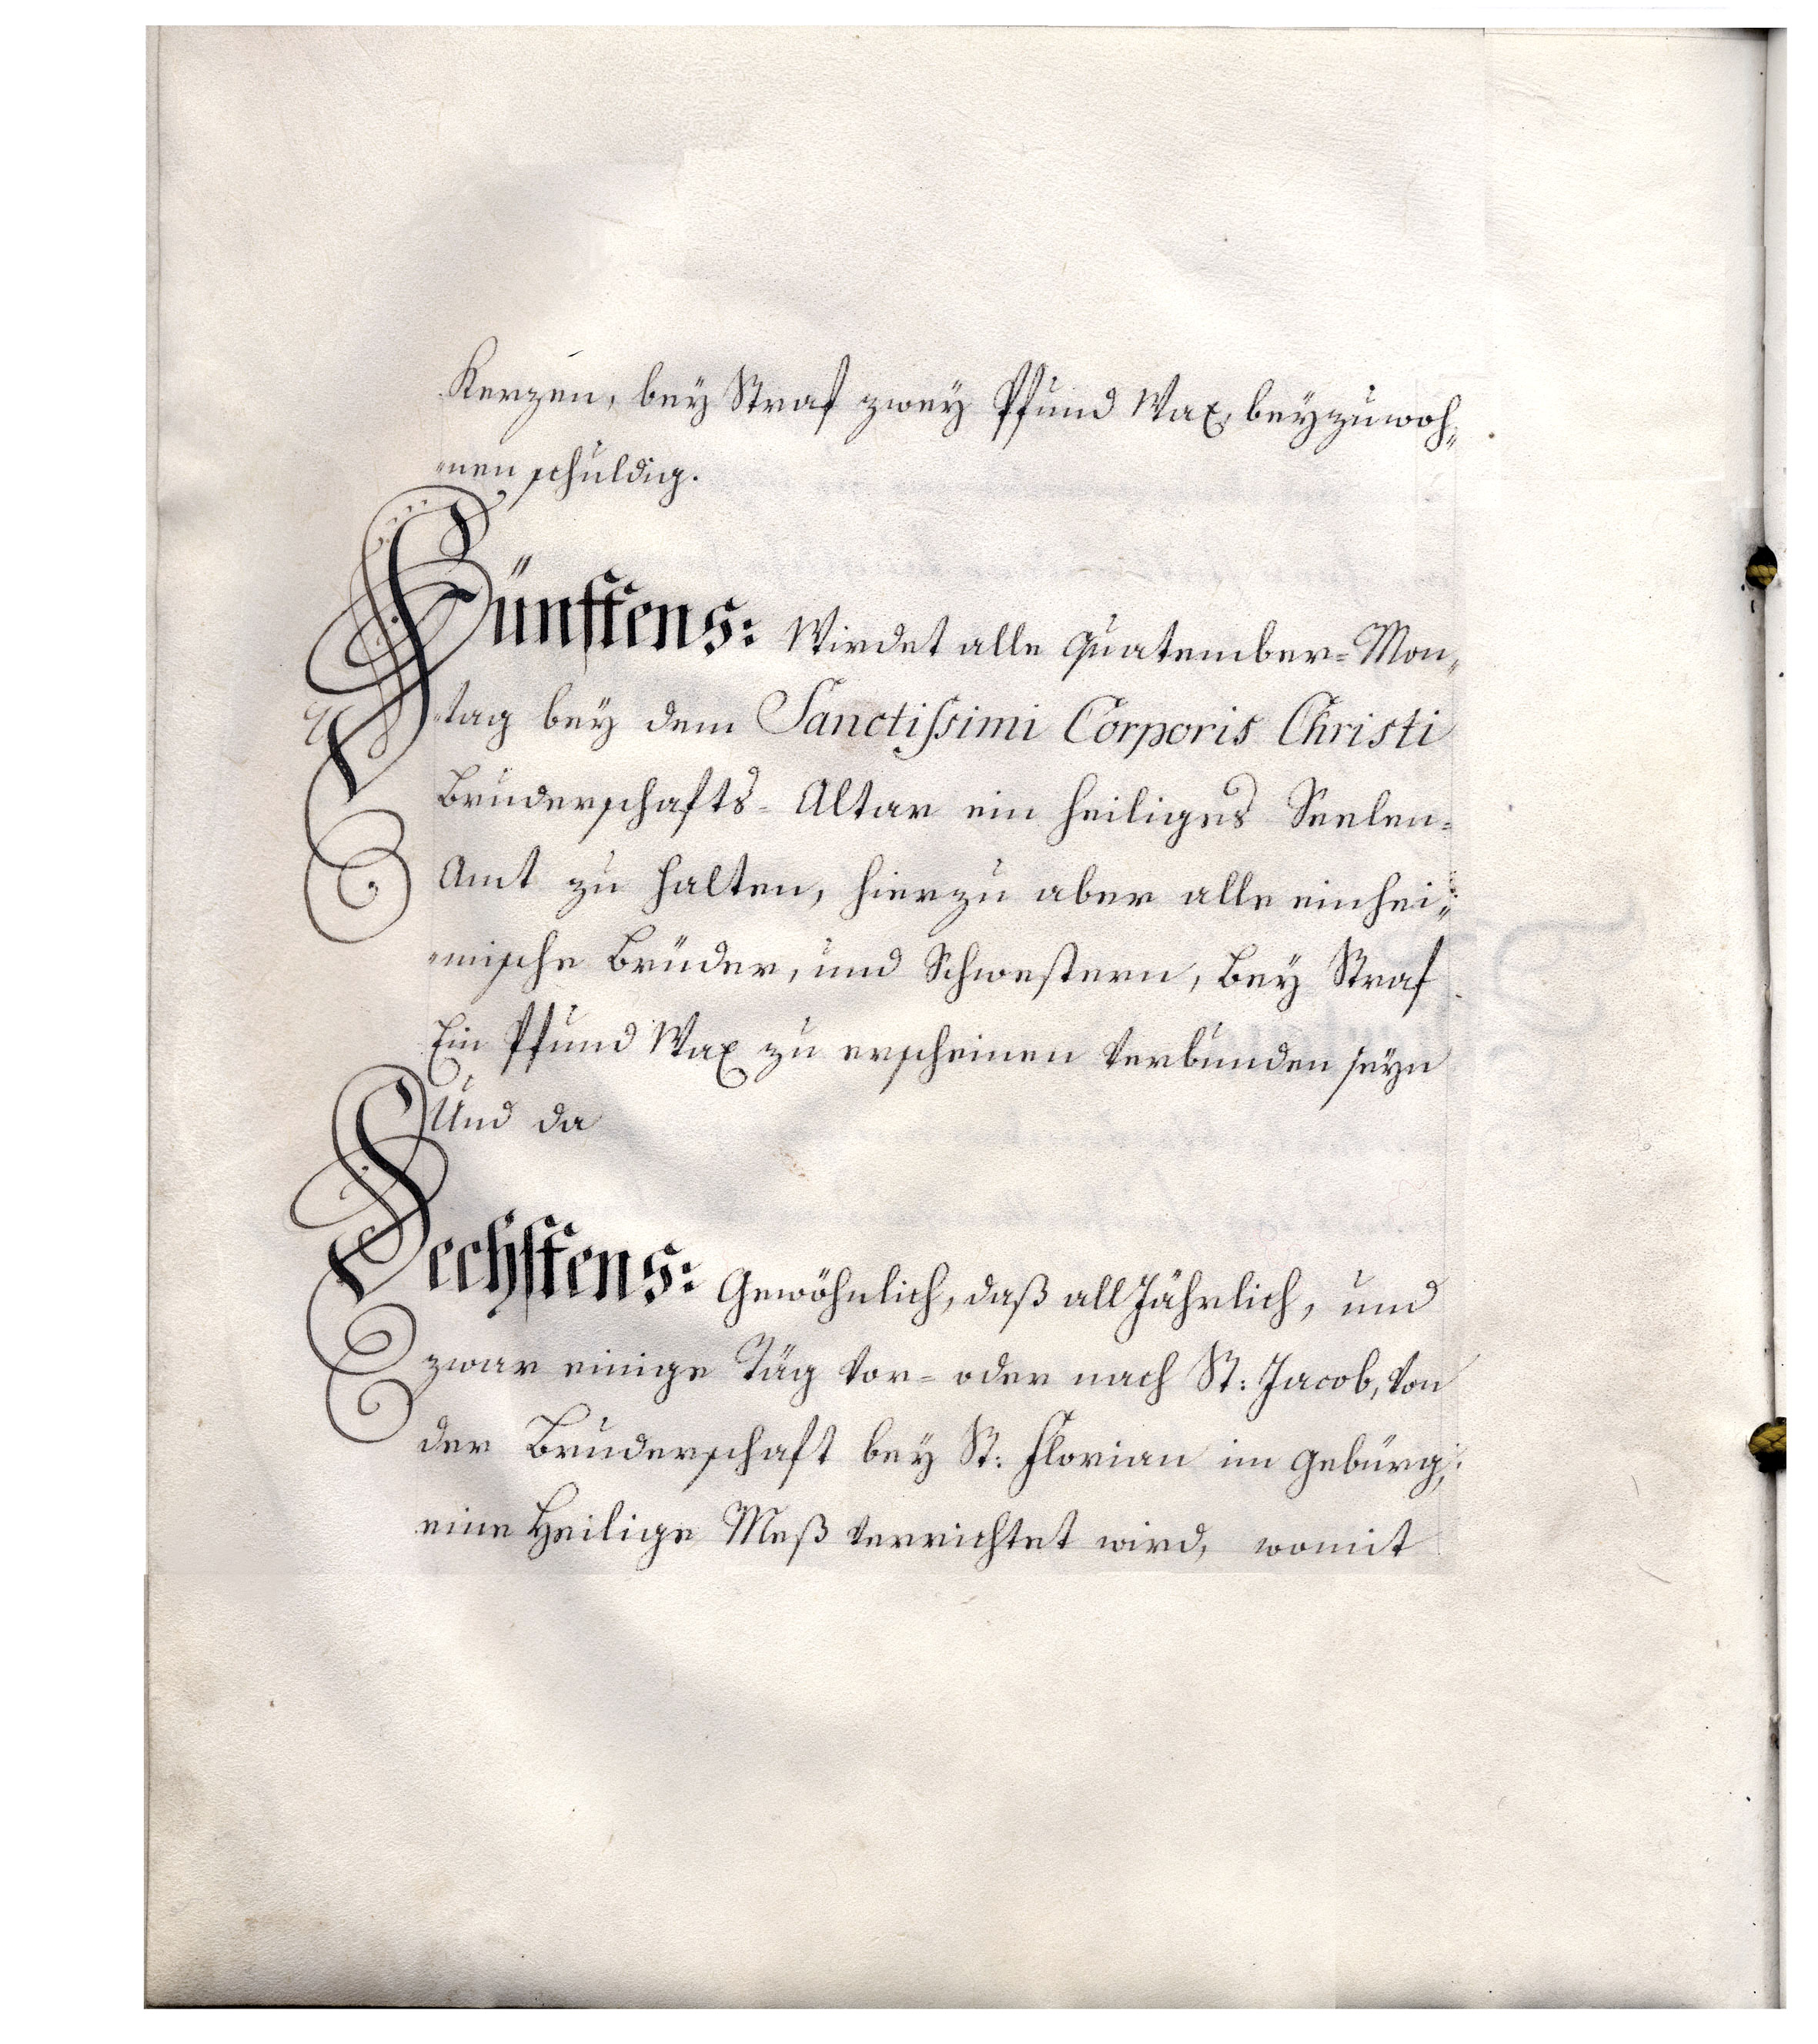 Kerzen, bey Straf zwey Pfund Wax, beyzuwoh„
„nen schuldig.
Fünftens: Wirdet alle Quatember=Mon„
„tag bey dem Sanctißimi Corporis Christi
Bruderschafts= Altar ein heiliges Seelen=
Amt zu halten, hierzu aber alle einhei„
„mische Brüder, und Schwestern, bey Straf
Ein Pfund Wax zu erscheinen verbunden seyn
Und da
Sechstens: Gewöhnlich, daß all Jährlich, und
zwar einige Täg vor= oder nach St: Jacob, von
der Bruderschaft bey St: Florian im gebürg,
eine Heilige Meß verrichtet wird, womit